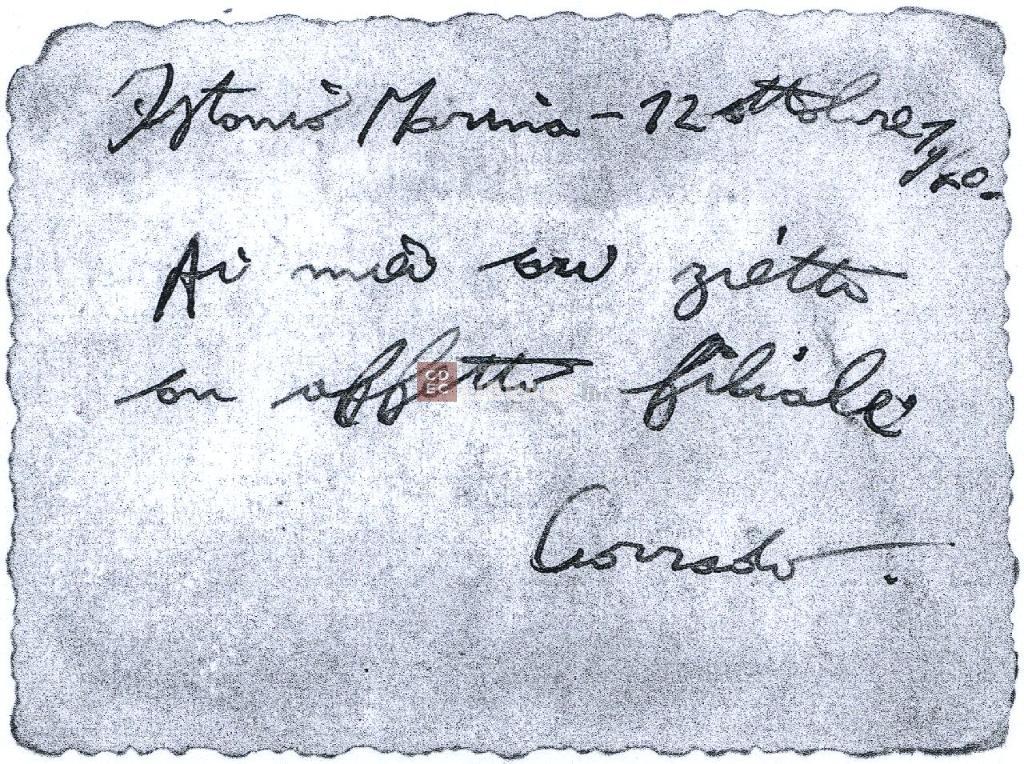 Istonio Marina - 12 ottobre 1940.
Ai miei cari zietti
con affetto filiale
Corrado.
CD
EC